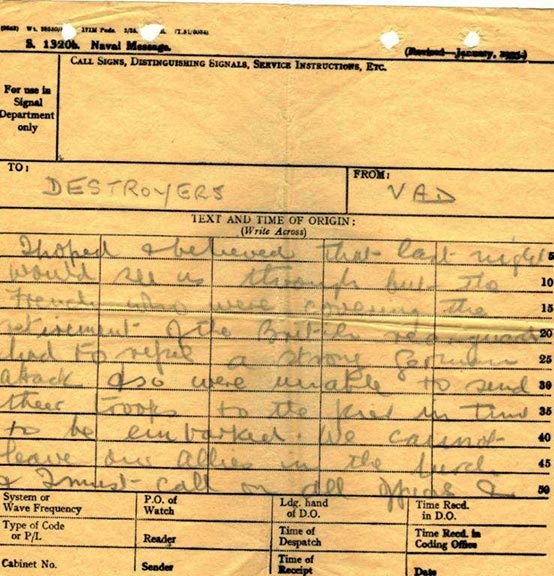 S. 1320b. Naval Message.
(Revised—January,
CALL SIGNS, DISTINGUISHING SIGNALS, SERVICE INSTRUCTIONS, ETC.
For use in
Signal
Department
only
TO:
FROM:
DESTROYERS
VAD
TEXT AND TIME OF ORIGIN:
(Write Across)
I hoped & believed that last night 5
would see us through but the 10
French who were covering the 15
retirement of the British rearguard 20
had to repel a strong German 25
attack & so were unable to send 30
their troops to the pier in time 35
to be embarked. We cannot 40
leave our allies in the lurch 45
& I must call on all 50
System or
Wave Frequency
P.O. of
Watch
Ldg. hand
of D.O.
Time Recd.
in D.O.
Type of Code
or P/L
Reader
Time of
Despatch
Time Recd. in
Coding Office
Cabinet No.
Sender
Time of
Receipt
Date